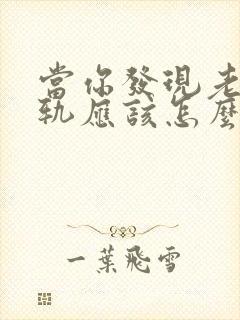 當你發現老
軌應該怎麼
一葉飛雪